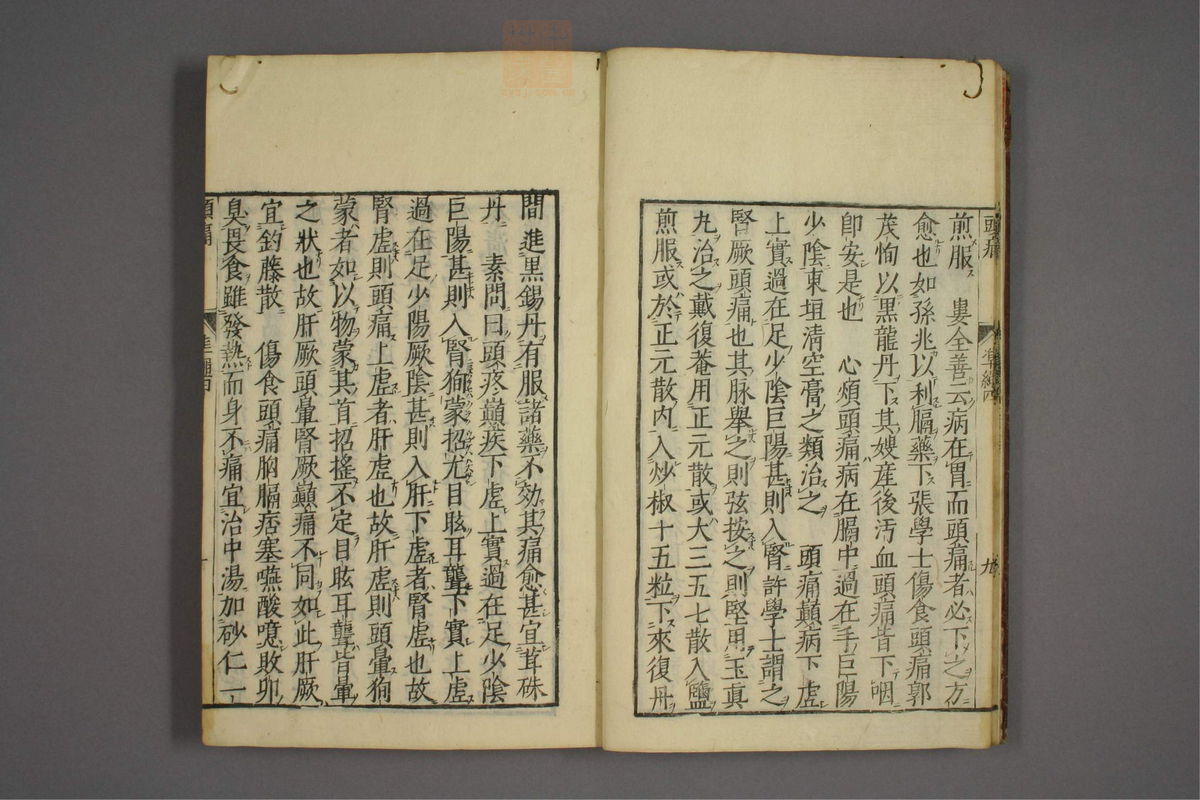 頭痛
準繩四
九
煎服　婁全善云病在胃而頭痛者必下之方
愈也如孫兆以利膈藥下張學士傷食頭痛郭
茂恂以黑龍丹下其嫂產後汚血頭痛皆下咽
卽安是也　心煩頭痛病在膈中過在手巨陽
少陰東垣淸空膏之類治之　頭痛巔病下虛
上實過在足少陰巨陽甚則入腎許學士謂之
腎厥頭痛也其脉舉之則弦按之則堅用玉眞
丸治之戴復菴用正元散或大三五七散入鹽
煎服或於正元散內入炒椒十五粒下來復丹
間進黑錫丹有服諸藥不効其痛愈甚宜茸硃
丹　素問曰頭疼巔疾下虛上實過在足少陰
巨陽甚則入腎狥蒙招尤目眩耳聾下實上虛
過在足少陽厥陰甚則入肝下虛者腎虛也故
腎虛則頭痛上虛者肝虛也故肝虛則頭暈狥
蒙者如以物蒙其首招搖不定目眩耳聾皆暈
之狀也故肝厥頭暈腎厥巔痛不同如此肝厥
宜鈎藤散　傷食頭痛胸膈痞塞嚥酸噫敗卵
臭畏食雖發熱而身不痛宜治中湯加砂仁一